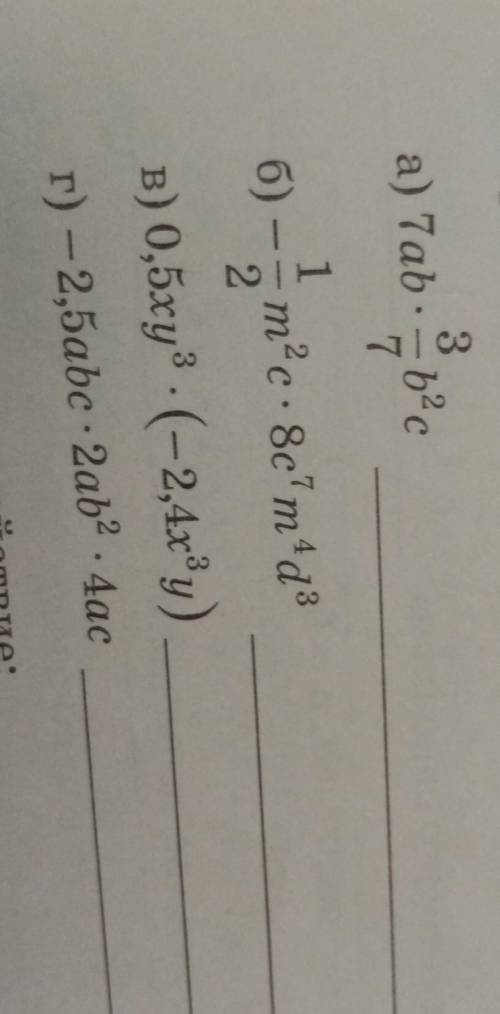 а) 7ab · 3/7 b²c
б) −1/2 m²c · 8c⁷m⁴d³
в) 0,5xy³ · (−2,4x³y)
г) −2,5abc · 2ab² · 4ac